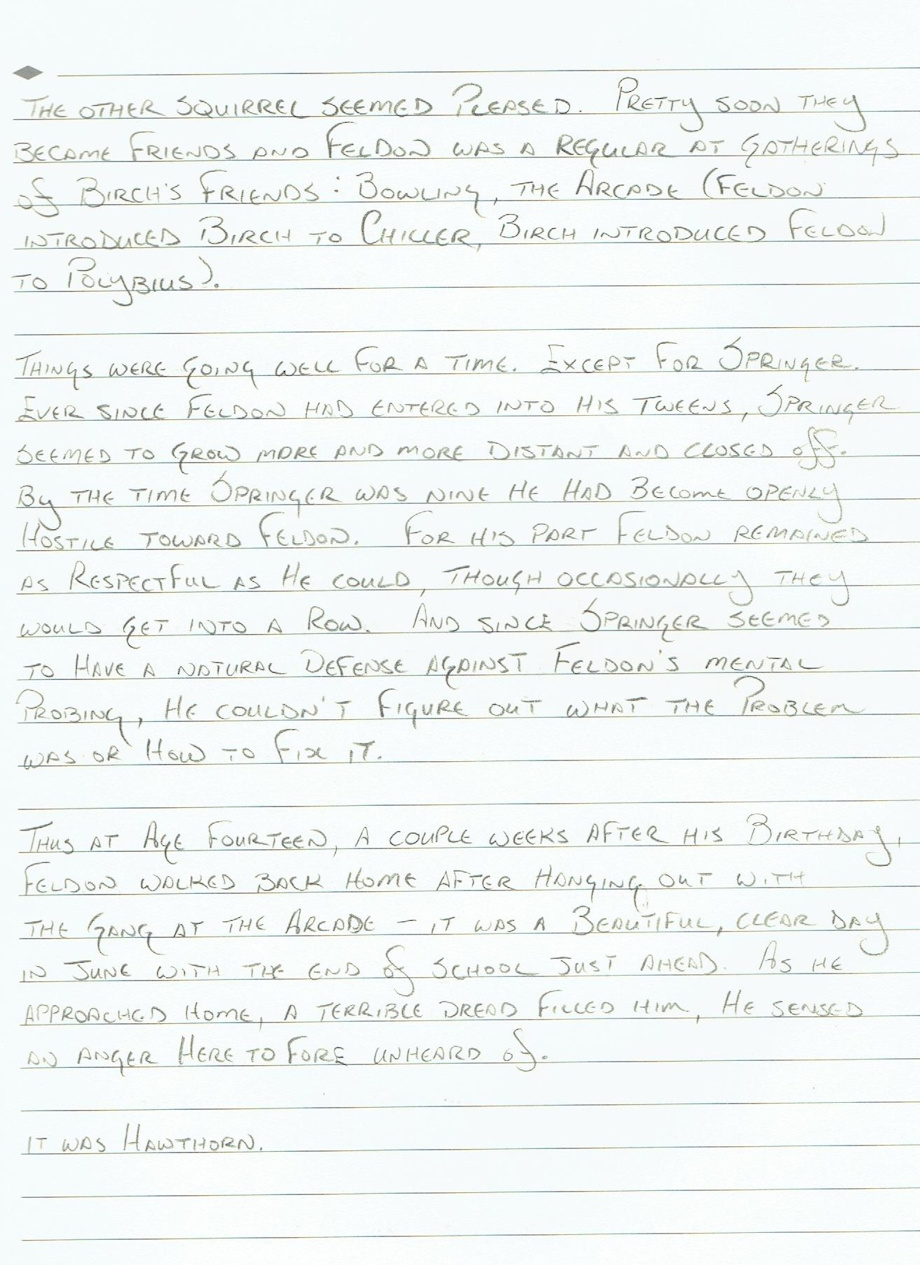 The other squirrel seemed pleased. Pretty soon they
became friends and Feldon was a regular at gatherings
of Birch's friends: Bowling, the Arcade (Feldon
introduced Birch to Chiller, Birch introduced Feldon
to Polybius).
Things were going well for a time. Except for Springer.
Ever since Feldon had entered into his tweens, Springer
seemed to grow more and more distant and closed off.
By the time Springer was nine he had become openly
hostile toward Feldon. For his part Feldon remained
as respectful as he could, though occasionally they
would get into a row. And since Springer seemed
to have a natural defense against Feldon's mental
probing, he couldn't figure out what the problem
was or how to fix it.
Thus at age fourteen, a couple weeks after his birthday,
Feldon walked back home after hanging out with
the gang at the Arcade – it was a beautiful, clear day
in June with the end of school just ahead. As he
approached home, a terrible dread filled him, he sensed
an anger here to fore unheard of.
It was Hawthorn.